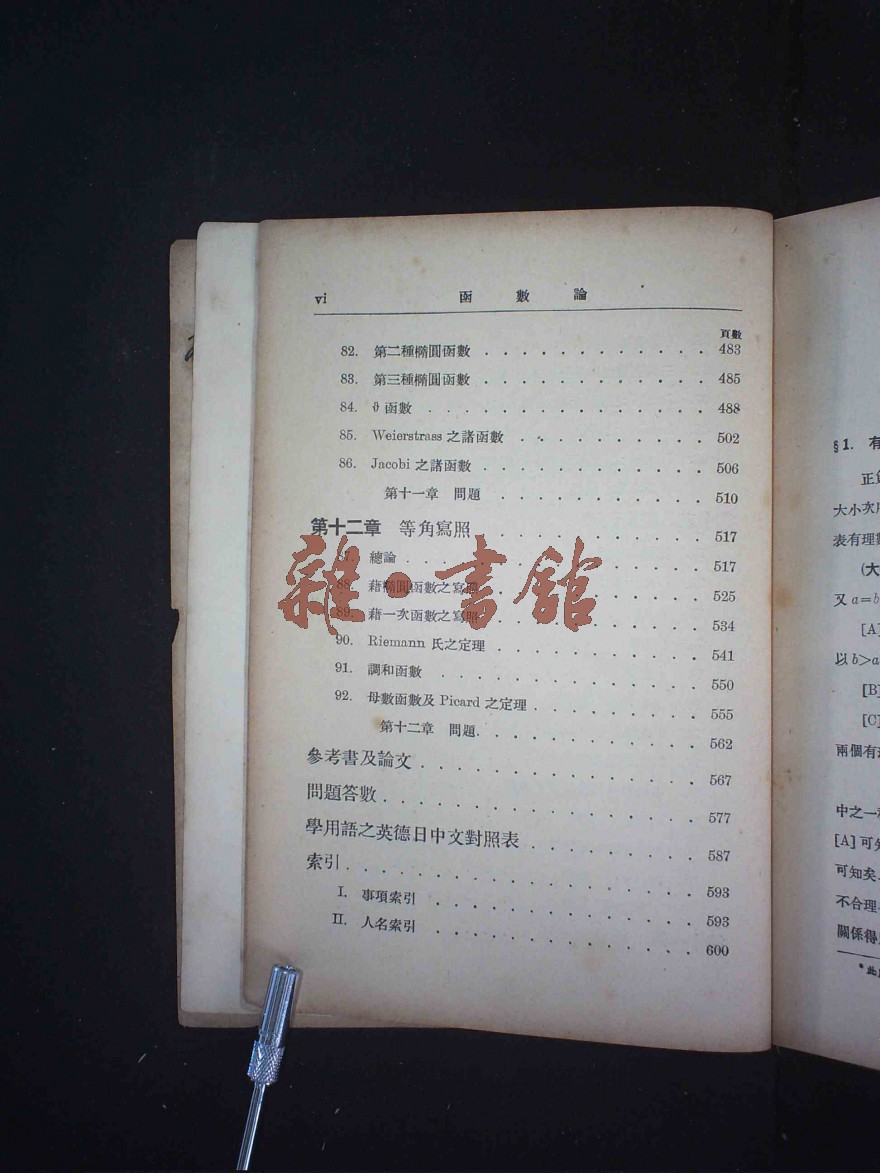 vi 函數論
頁數
82. 第二種橢圓函數 . . . . . . . . . . . . 483
83. 第三種橢圓函數 . . . . . . . . . . . . 485
84. ϑ 函數 . . . . . . . . . . . . 488
85. Weierstrass 之諸函數 . . . . . . . . . . 502
86. Jacobi 之諸函數 . . . . . . . . . . . . 506
第十一章 問題 . . . . . . . . . . . . 510
第十二章 等角寫照 . . . . . . . . . . . . 517
87. 總論 . . . . . . . . . . . . 517
88. 藉橢圓函數之寫照 . . . . . . . . . . . . 525
89. 藉一次函數之寫照 . . . . . . . . . . . . 534
90. Riemann 氏之定理 . . . . . . . . . . . . 541
91. 調和函數 . . . . . . . . . . . . 550
92. 母數函數及 Picard 之定理 . . . . . . . . . . 555
第十二章 問題 . . . . . . . . . . . . 562
參考書及論文 . . . . . . . . . . . . 567
問題答數 . . . . . . . . . . . . 577
學用語之英德日中文對照表 . . . . . . . . 587
索引 . . . . . . . . . . . . 593
I. 事項索引 . . . . . . . . . . . . 593
II. 人名索引 . . . . . . . . . . . . 600
雜·書館
§1. 有
正
大小次
表有理數
(大
又 a=b
[A]
以 b>a
[B]
[C]
兩個有
中之一
[A] 可
可知矣
不合理
關係得
*此